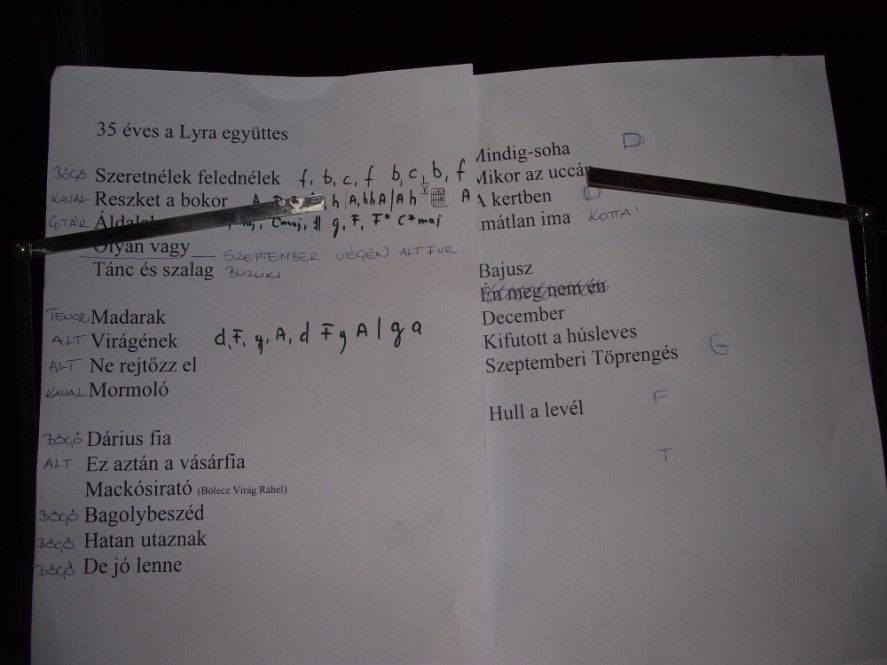 35 éves a Lyra együttes
BŐGŐ Szeretnélek felednélek f, b, c, f b, c, b, f
KAVAL Reszket a bokor h A, hhA A h V A
GITÁR g, F, F° C*maj
Olyan vagy SZEPTEMBER VÉGÉN ALT FUR
Tánc és szalag BUZUKI
TENOR Madarak
ALT Virágének d, F, g, A, d F g A | g a
ALT Ne rejtőzz el
KAVAL Mormoló
BŐGŐ Dárius fia
ALT Ez aztán a vásárfia
Mackósirató (Bölecz Virág Ráhel)
BŐGŐ Bagolybeszéd
BŐGŐ Hatan utaznak
BŐGŐ De jó lenne
Mindig-soha D
Mikor az uccán
A kertben D
mátlan ima KOTTA!
Bajusz
Én meg nem én
December
Kifutott a húsleves
Szeptemberi Töprengés G
Hull a levél F
T